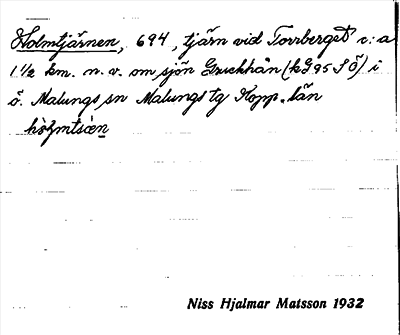 Holmtjärnen, 694, tjärn vid Torrberget c:a
1 1/2 km. n. v. om sjön (kG 95 SÖ) i
ö. Malungs sn Malungs tg Kopp. län
Niss Hjalmar Matsson 1932